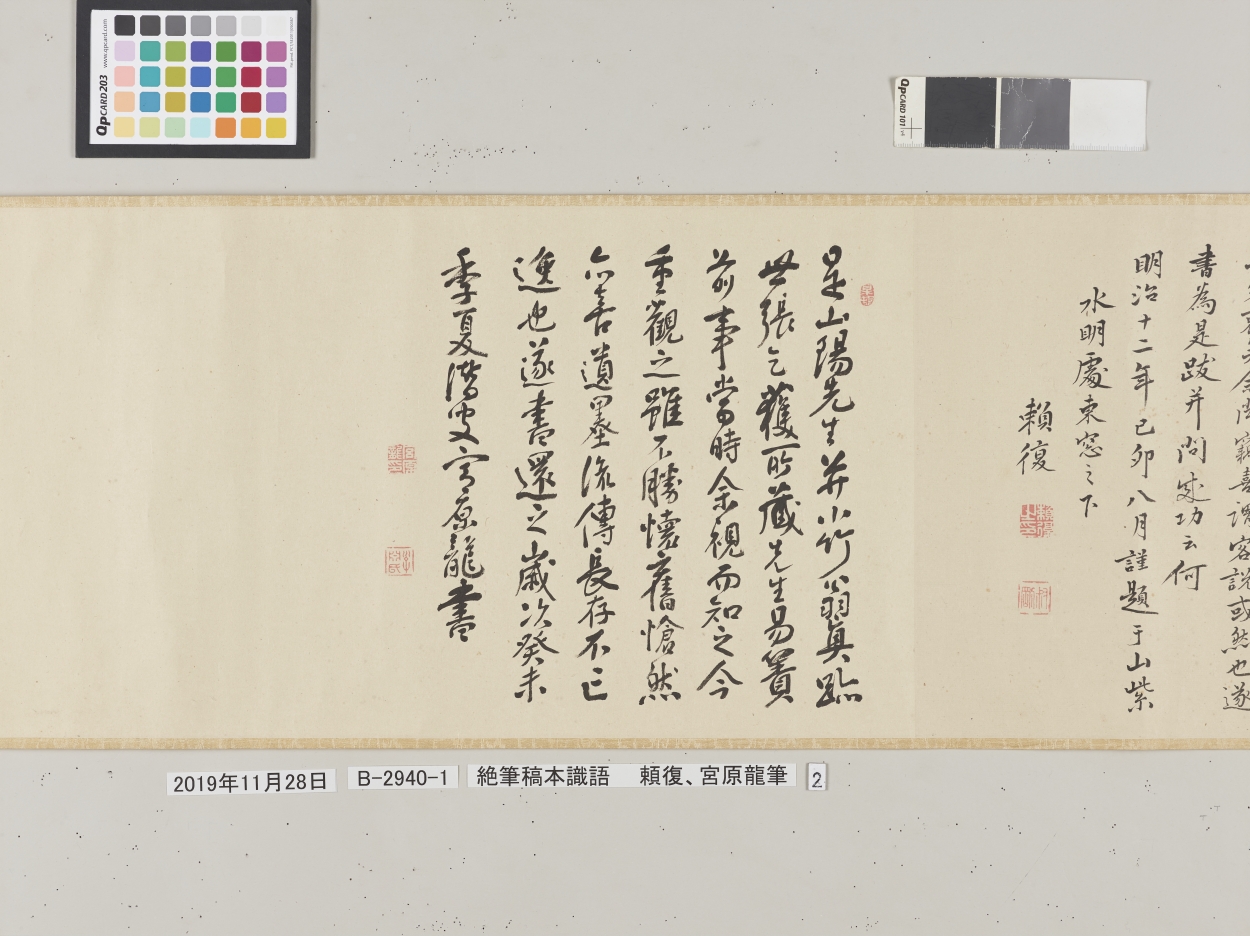 書為是跋并問成功云何
明治十二年己卯八月謹題于山紫
水明處東窓之下
賴復
是山陽先生并小竹翁真跡
世張之獲所藏先生易簀
前事當時余視而知之今
重觀之雖不勝懷舊愴然
亦喜遺墨流傳長存不亡
逸也遂書還之歲次癸未
季夏潛叟宮原龍書
QpCARD 203
www.qpcard.com
QpCARD 101 v4
2019年11月28日
B-2940-1
絶筆稿本識語 頼復、宮原龍筆
2